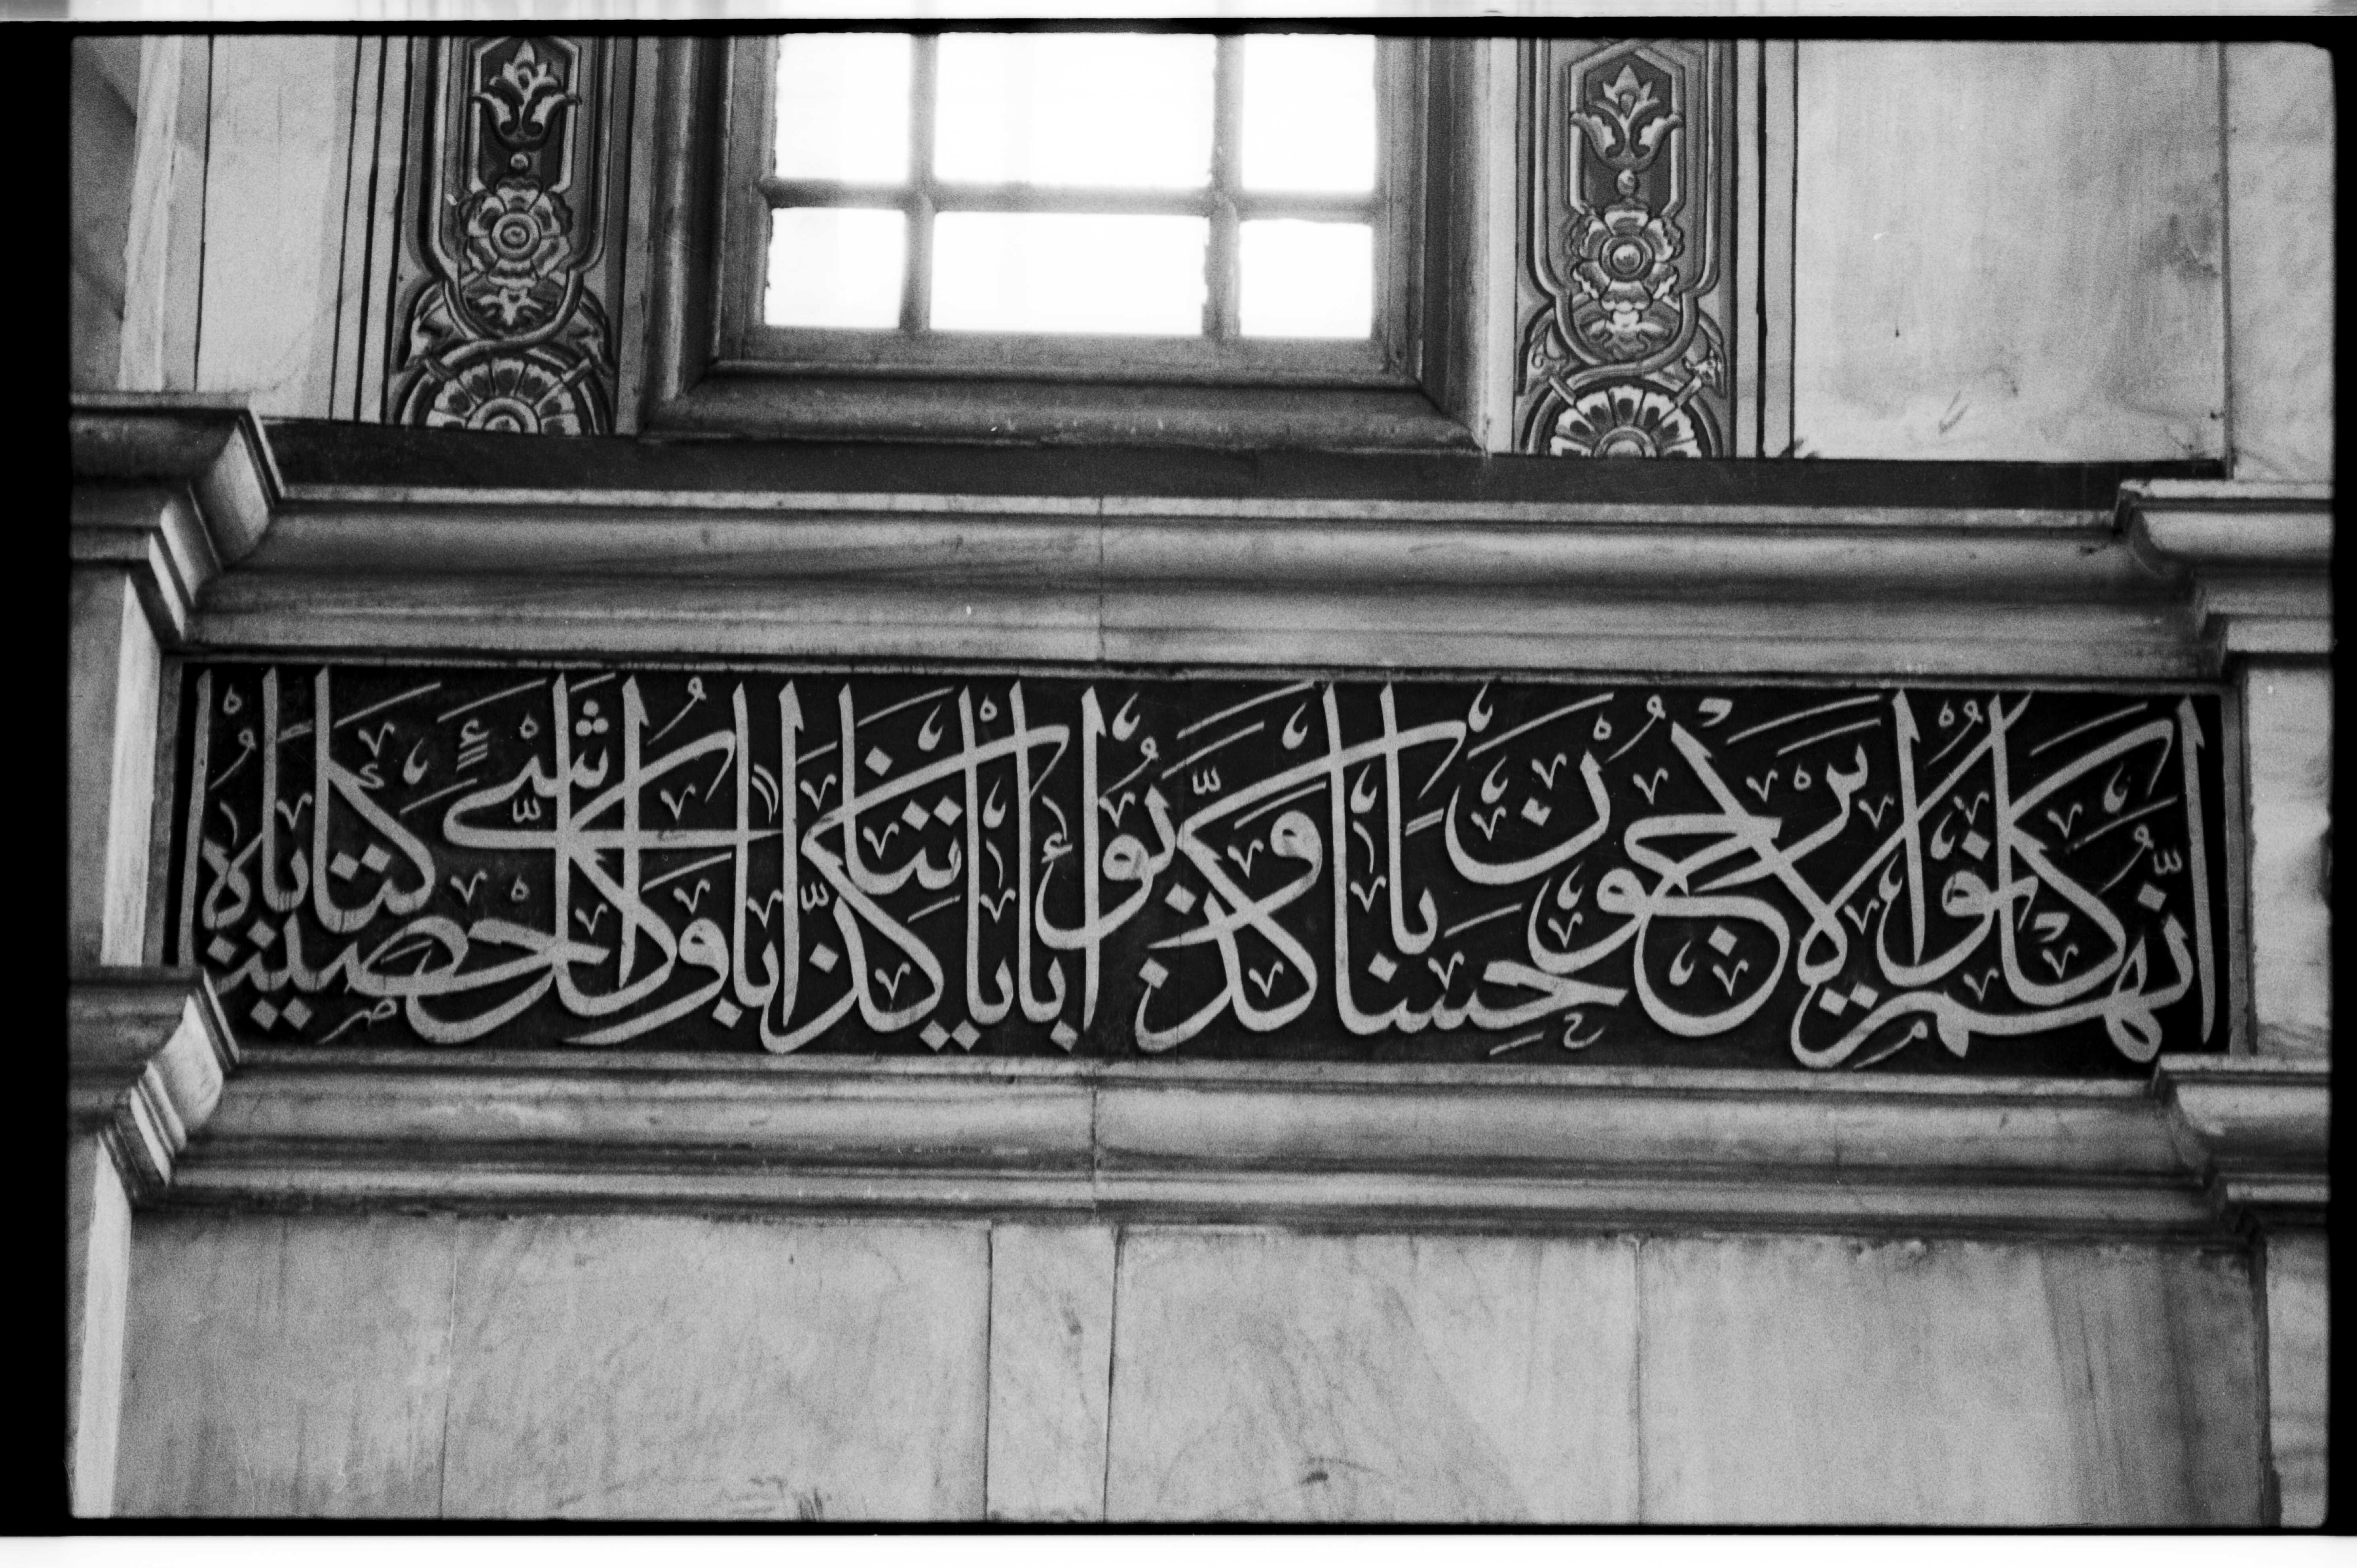 اِنَّهُمْ كَانُوا لَا يَرْجُونَ حِسَابًا وَكَذَّبُوا بِاٰيَاتِنَا كِذَّابًا وَكُلَّ شَيْءٍ اَحْصَيْنَاهُ كِتَابًا